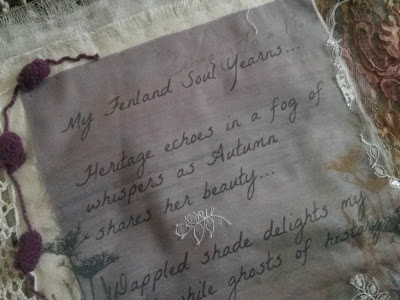 My Fenland Soul Yearns...
Heritage echoes in a fog of
whispers as Autumn
shares her beauty...
Dappled shade delights my
while ghosts of history